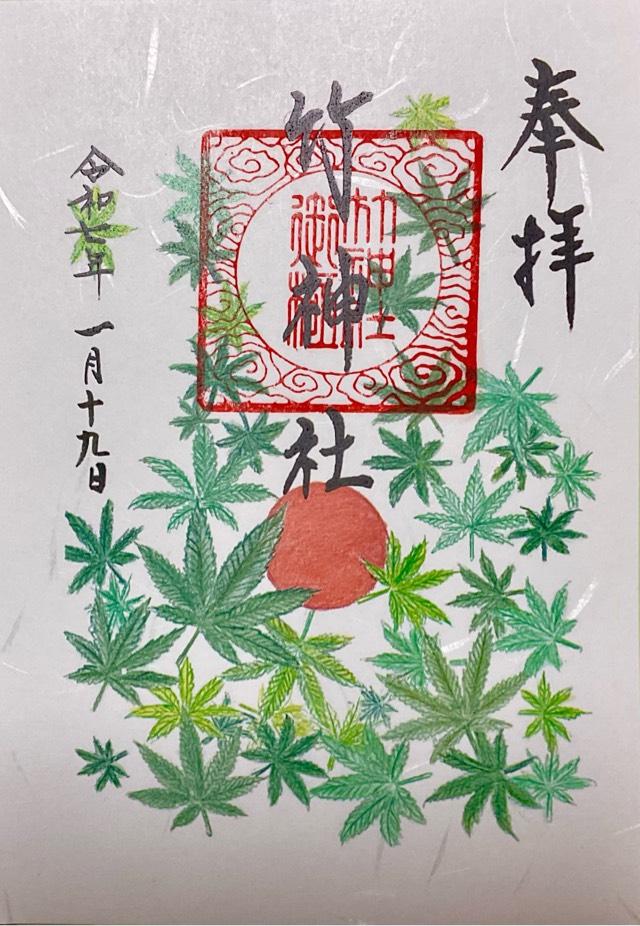 奉拝
竹神社
竹神社
御璽
令和七年 一月十九日